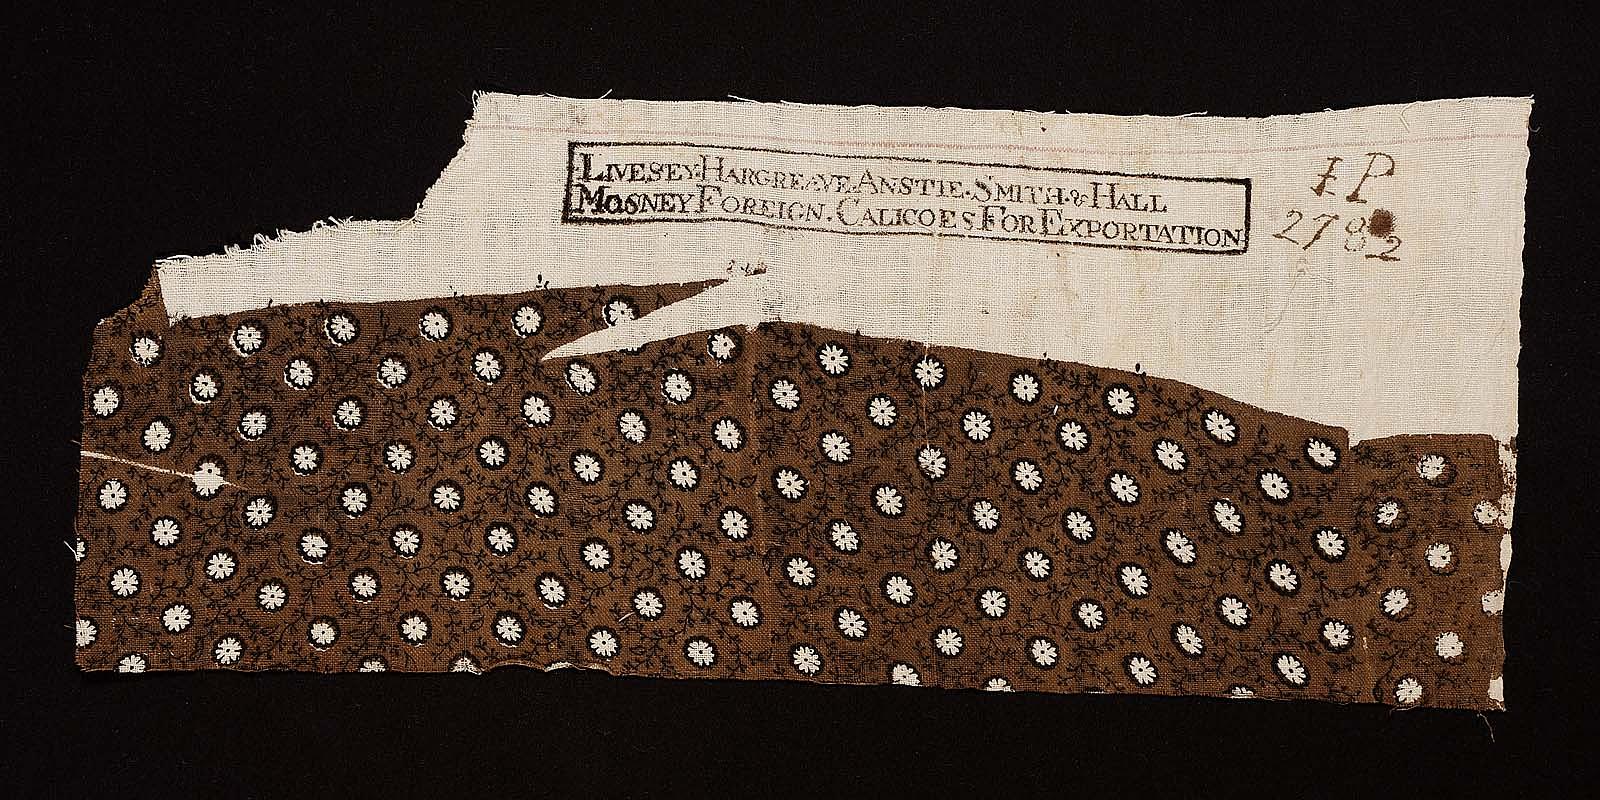 LIVESEY·HARGREAVE·ANSTIE·SMITH·&HALL
MOSNEY FOREIGN·CALICOES FOR EXPORTATION
IP
2782